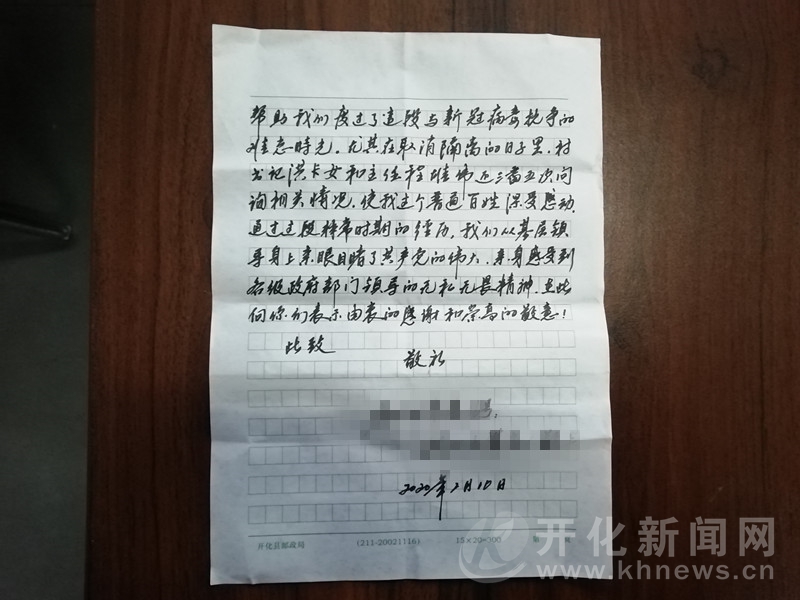 帮助我们度过了这段与新冠病毒抗争的
难忘时光。尤其在取消隔离的日子里，村
书记洪卡女和主任程雄伟近三番五次问
询相关情况，使我这个普通百姓深受感动，
通过这段特常时期的经历，我们从基层领
导身上亲眼目睹了共产党的伟大，亲身感受到
各级政府部门领导的无私无畏精神，在此
向你们表示由衷的感谢和崇高的敬意！
此致 敬礼
2020年2月10日
开化县邮政局 (211-20021116) 15×20=300 第
开化新闻网
www.khnews.cn